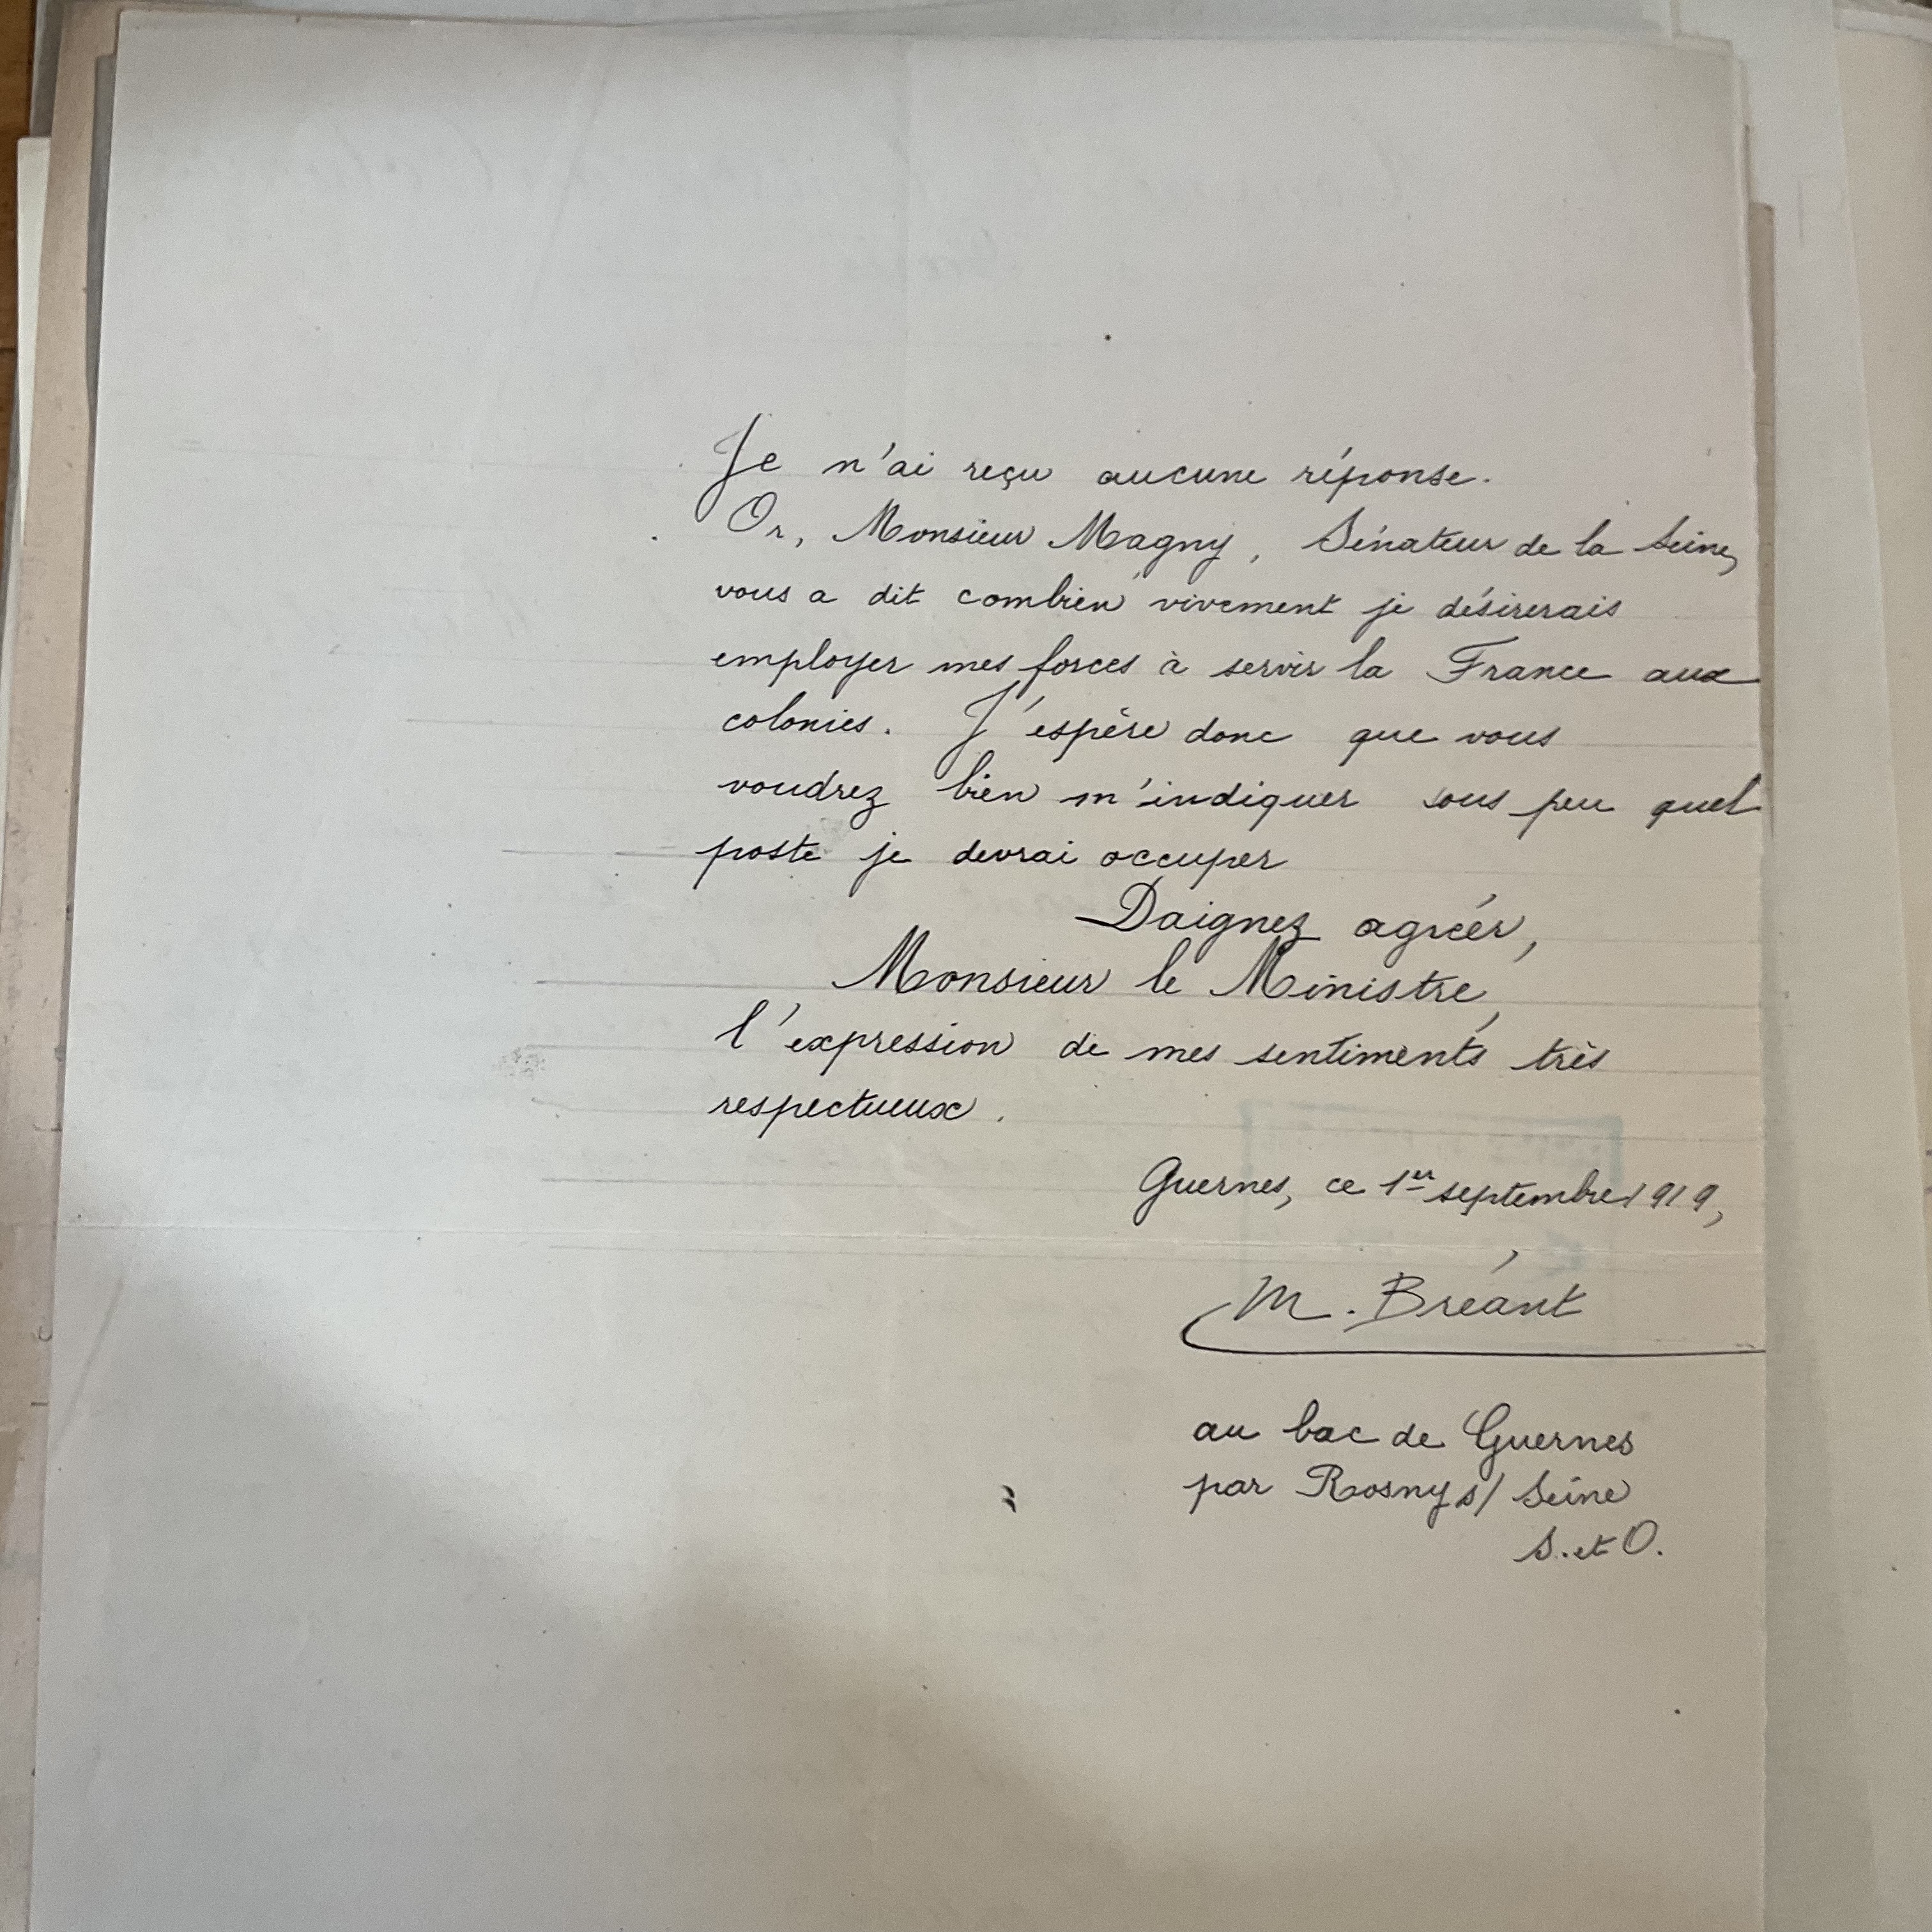 Je n'ai reçu aucune réponse.
Or, Monsieur Magny, Sénateur de la Seine,
vous a dit combien vivement je désirerais
employer mes forces à servir la France aux
colonies. J'espère donc que vous
voudrez bien m'indiquer sous peu quel
poste je devrai occuper
Daignez agréer,
Monsieur le Ministre,
l'expression de mes sentiments très
respectueux.
Guernes, ce 1er septembre 1919,
M. Bréant
au bac de Guernes
par Rosny s/ Seine
S. et O.